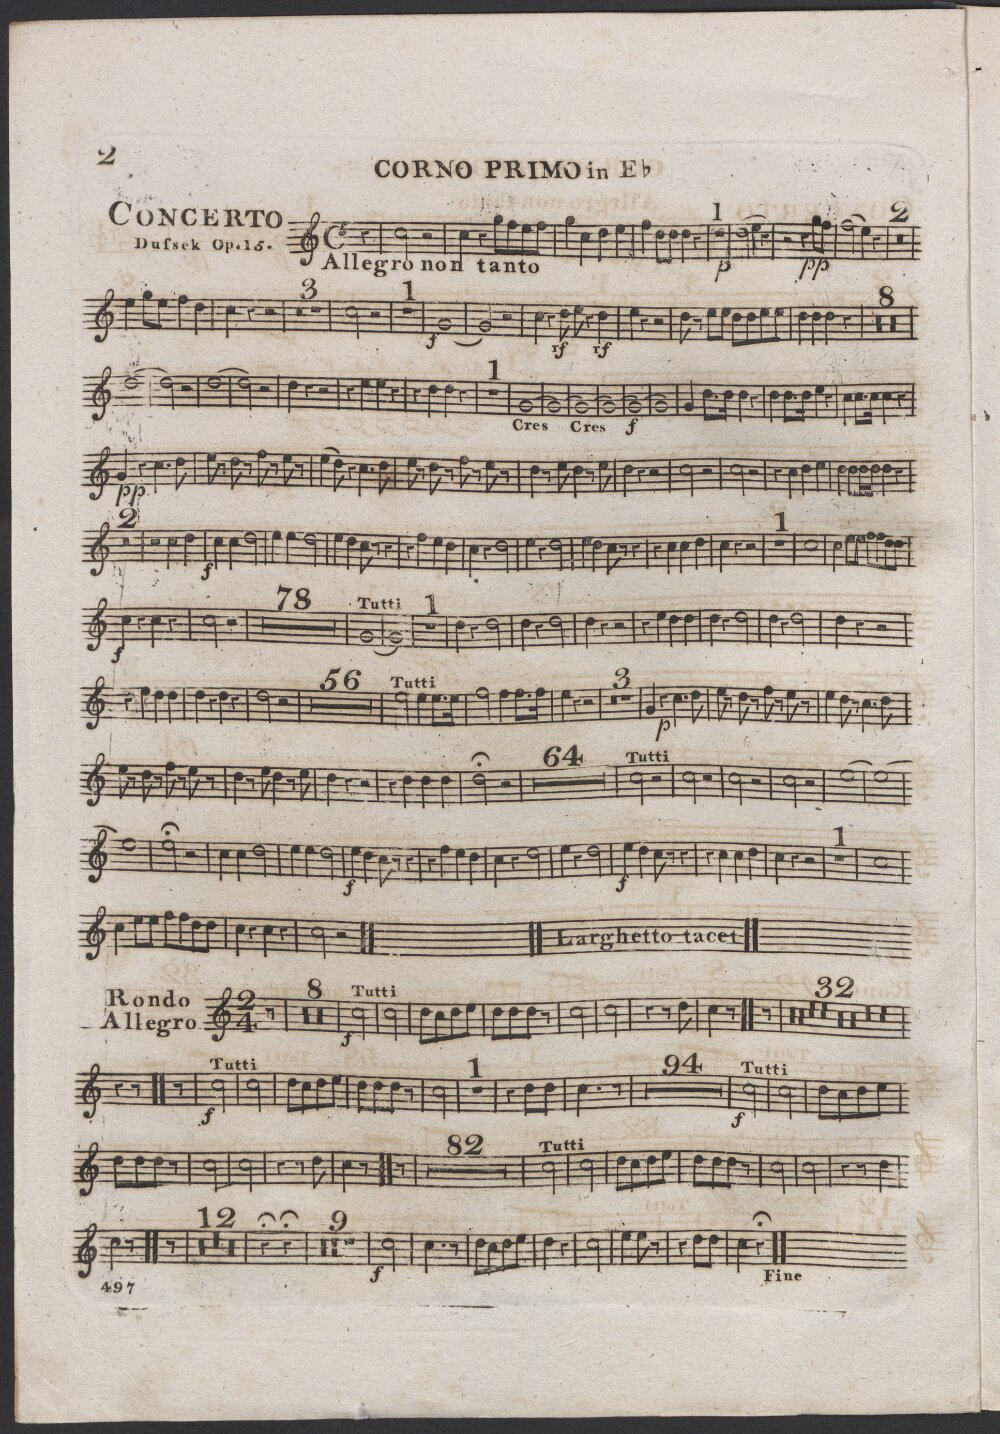 2
CORNO PRIMO in E♭
CONCERTO
Dufsek Op. 15.
1 2
p pp
Allegro non tanto
3 1 8
f rf rf
1
Cres Cres f
pp
2 1
f
78 Tutti 1
f
56 Tutti 3
p
64 Tutti
1
f f
Larghetto tacet
Rondo
Allegro
2/4 8 Tutti 32
f
Tutti 1 94 Tutti
f f
82 Tutti
12 9
f
Fine
497